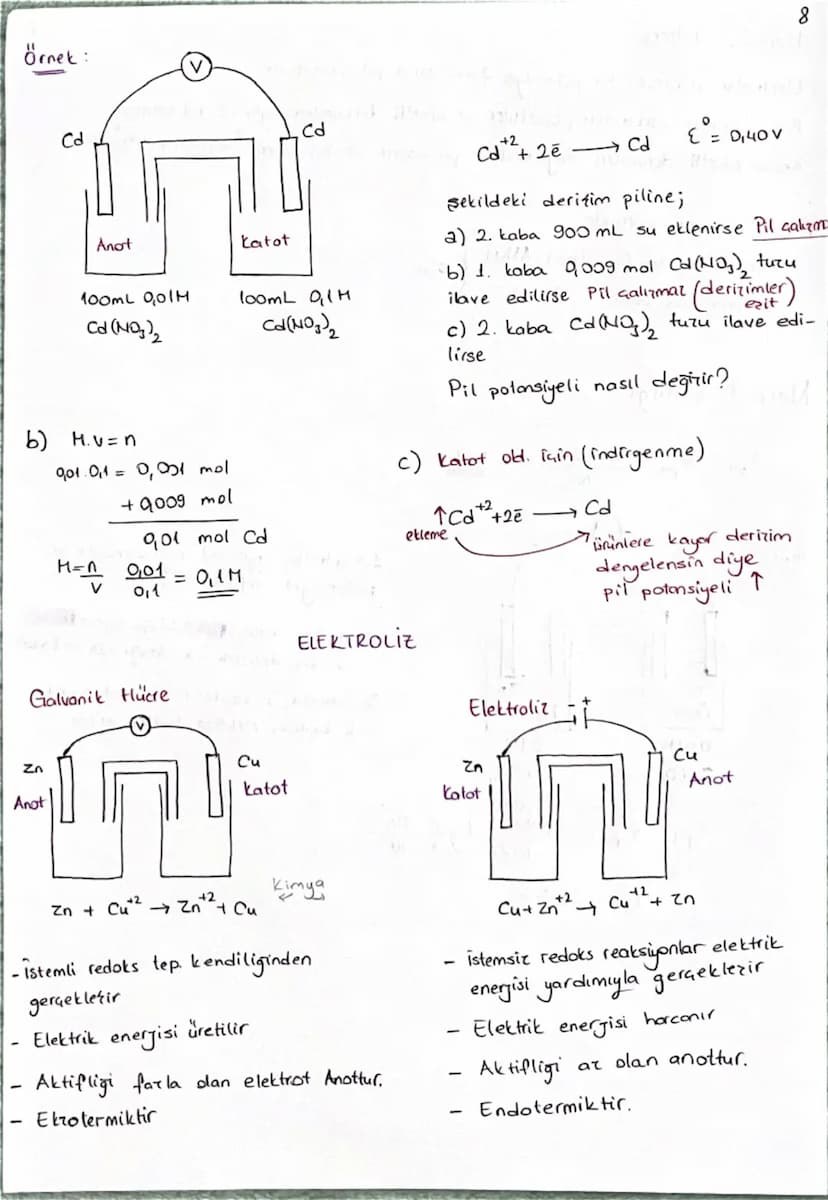 8
Örnek :
V
Cd
Cd
Anot
Katot
100mL 0,01M
Cd(NO₃)₂
100mL 0,1M
Cd(NO₃)₂
Cd⁺² + 2ē → Cd ℇ° = 0,40V
şekildeki derişim piline;
a) 2. kaba 900 mL su eklenirse Pil çalışm
b) 1. kaba 0,009 mol Cd(NO₃)₂ tuzu
ilave edilirse Pil çalışmaz (derişimler
eşit)
c) 2. kaba Cd(NO₃)₂ tuzu ilave edi-
lirse
Pil potansiyeli nasıl değişir?
b) M.v=n
0,01.0,1 = 0,001 mol
+ 0,009 mol
0,01 mol Cd
M=n/V 0,01/0,1 = 0,1M
c) Katot old. için (indirgenme)
↑Cd⁺²+2ē → Cd
ekleme
ürünlere kayar derişim
dengelensin diye
pil potansiyeli ↑
ELEKTROLİZ
Galvanik Hücre
V
Zn
Anot
Cu
Katot
Zn + Cu⁺² → Zn⁺² + Cu
Kimya
- İstemli redoks tep. kendiliğinden
gerçekleşir
- Elektrik energisi üretilir
- Aktifligi fazla olan elektrot Anottur.
- Ekzotermiktir
Elektroliz
- +
Zn
Katot
Cu
Anot
Cu + Zn⁺² → Cu⁺² + Zn
- istemsiz redoks reaksiyonlar elektrik
energisi yardımıyla gerçekleşir
- Elektrik energisi harcanır
- Aktifligi az olan anottur.
- Endotermiktir.